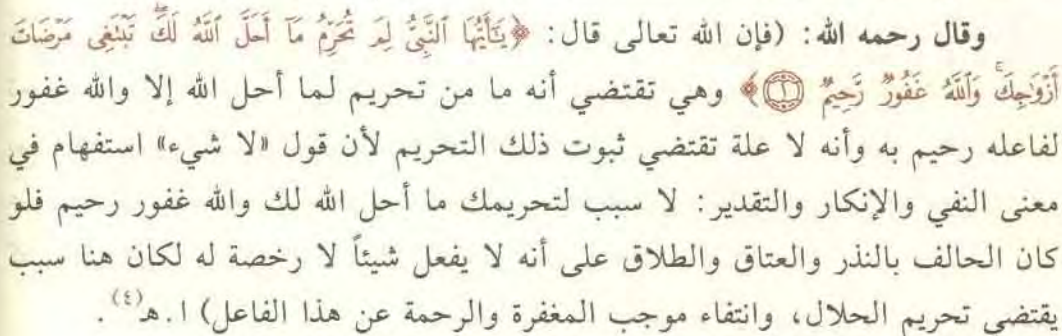 وقال رحمه الله: (فإن الله تعالى قال: ﴿يَٰٓأَيُّهَا ٱلنَّبِىُّ لِمَ تُحَرِّمُ مَآ أَحَلَّ ٱللَّهُ لَكَۖ تَبْتَغِى مَرْضَاتَ
أَزْوَٰجِكَۚ وَٱللَّهُ غَفُورٌ رَّحِيمٌ ۝١﴾ وهي تقتضي أنه ما من تحريم لما أحل الله إلا والله غفور
لفاعله رحيم به وأنه لا علة تقتضي ثبوت ذلك التحريم لأن قول «لا شيء» استفهام في
معنى النفي والإنكار والتقدير: لا سبب لتحريمك ما أحل الله لك والله غفور رحيم فلو
كان الحالف بالنذر والعتاق والطلاق على أنه لا يفعل شيئاً لا رخصة له لكان هنا سبب
يقتضي تحريم الحلال، وانتفاء موجب المغفرة والرحمة عن هذا الفاعل) ا.هـ(٤).